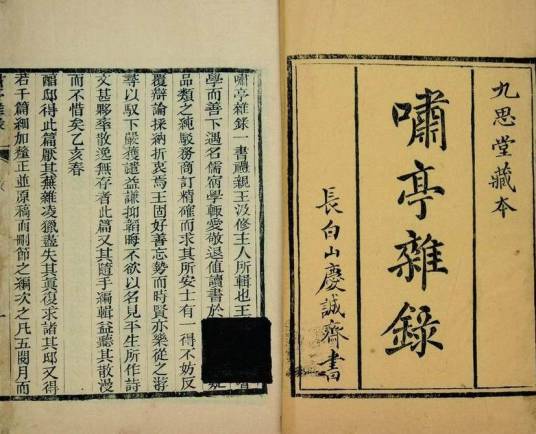 九思堂藏本
嘯亭雜錄
長白山慶誠齋書
嘯亭雜錄一書禮親王汲修主人所輯也王
學而善下遇名儒宿學輒愛敬退值讀書於
品類之純駁務商訂精確而求其所安士有一得不妨反
覆辯論採納折衷焉王固好善忘勢而時賢亦樂從之游
等以馭下嚴獲譴益謙抑韜晦不欲以名見平生所作詩
文甚夥率散逸無存者此篇又其隨手編輯益聽其散漫
而不惜矣乙亥春
醇邸得此篇厭其蕪雜凌獵盡失其真復求諸其邸又得
若干篇細加釐正並原稿而刪節之編次之凡五閱月而